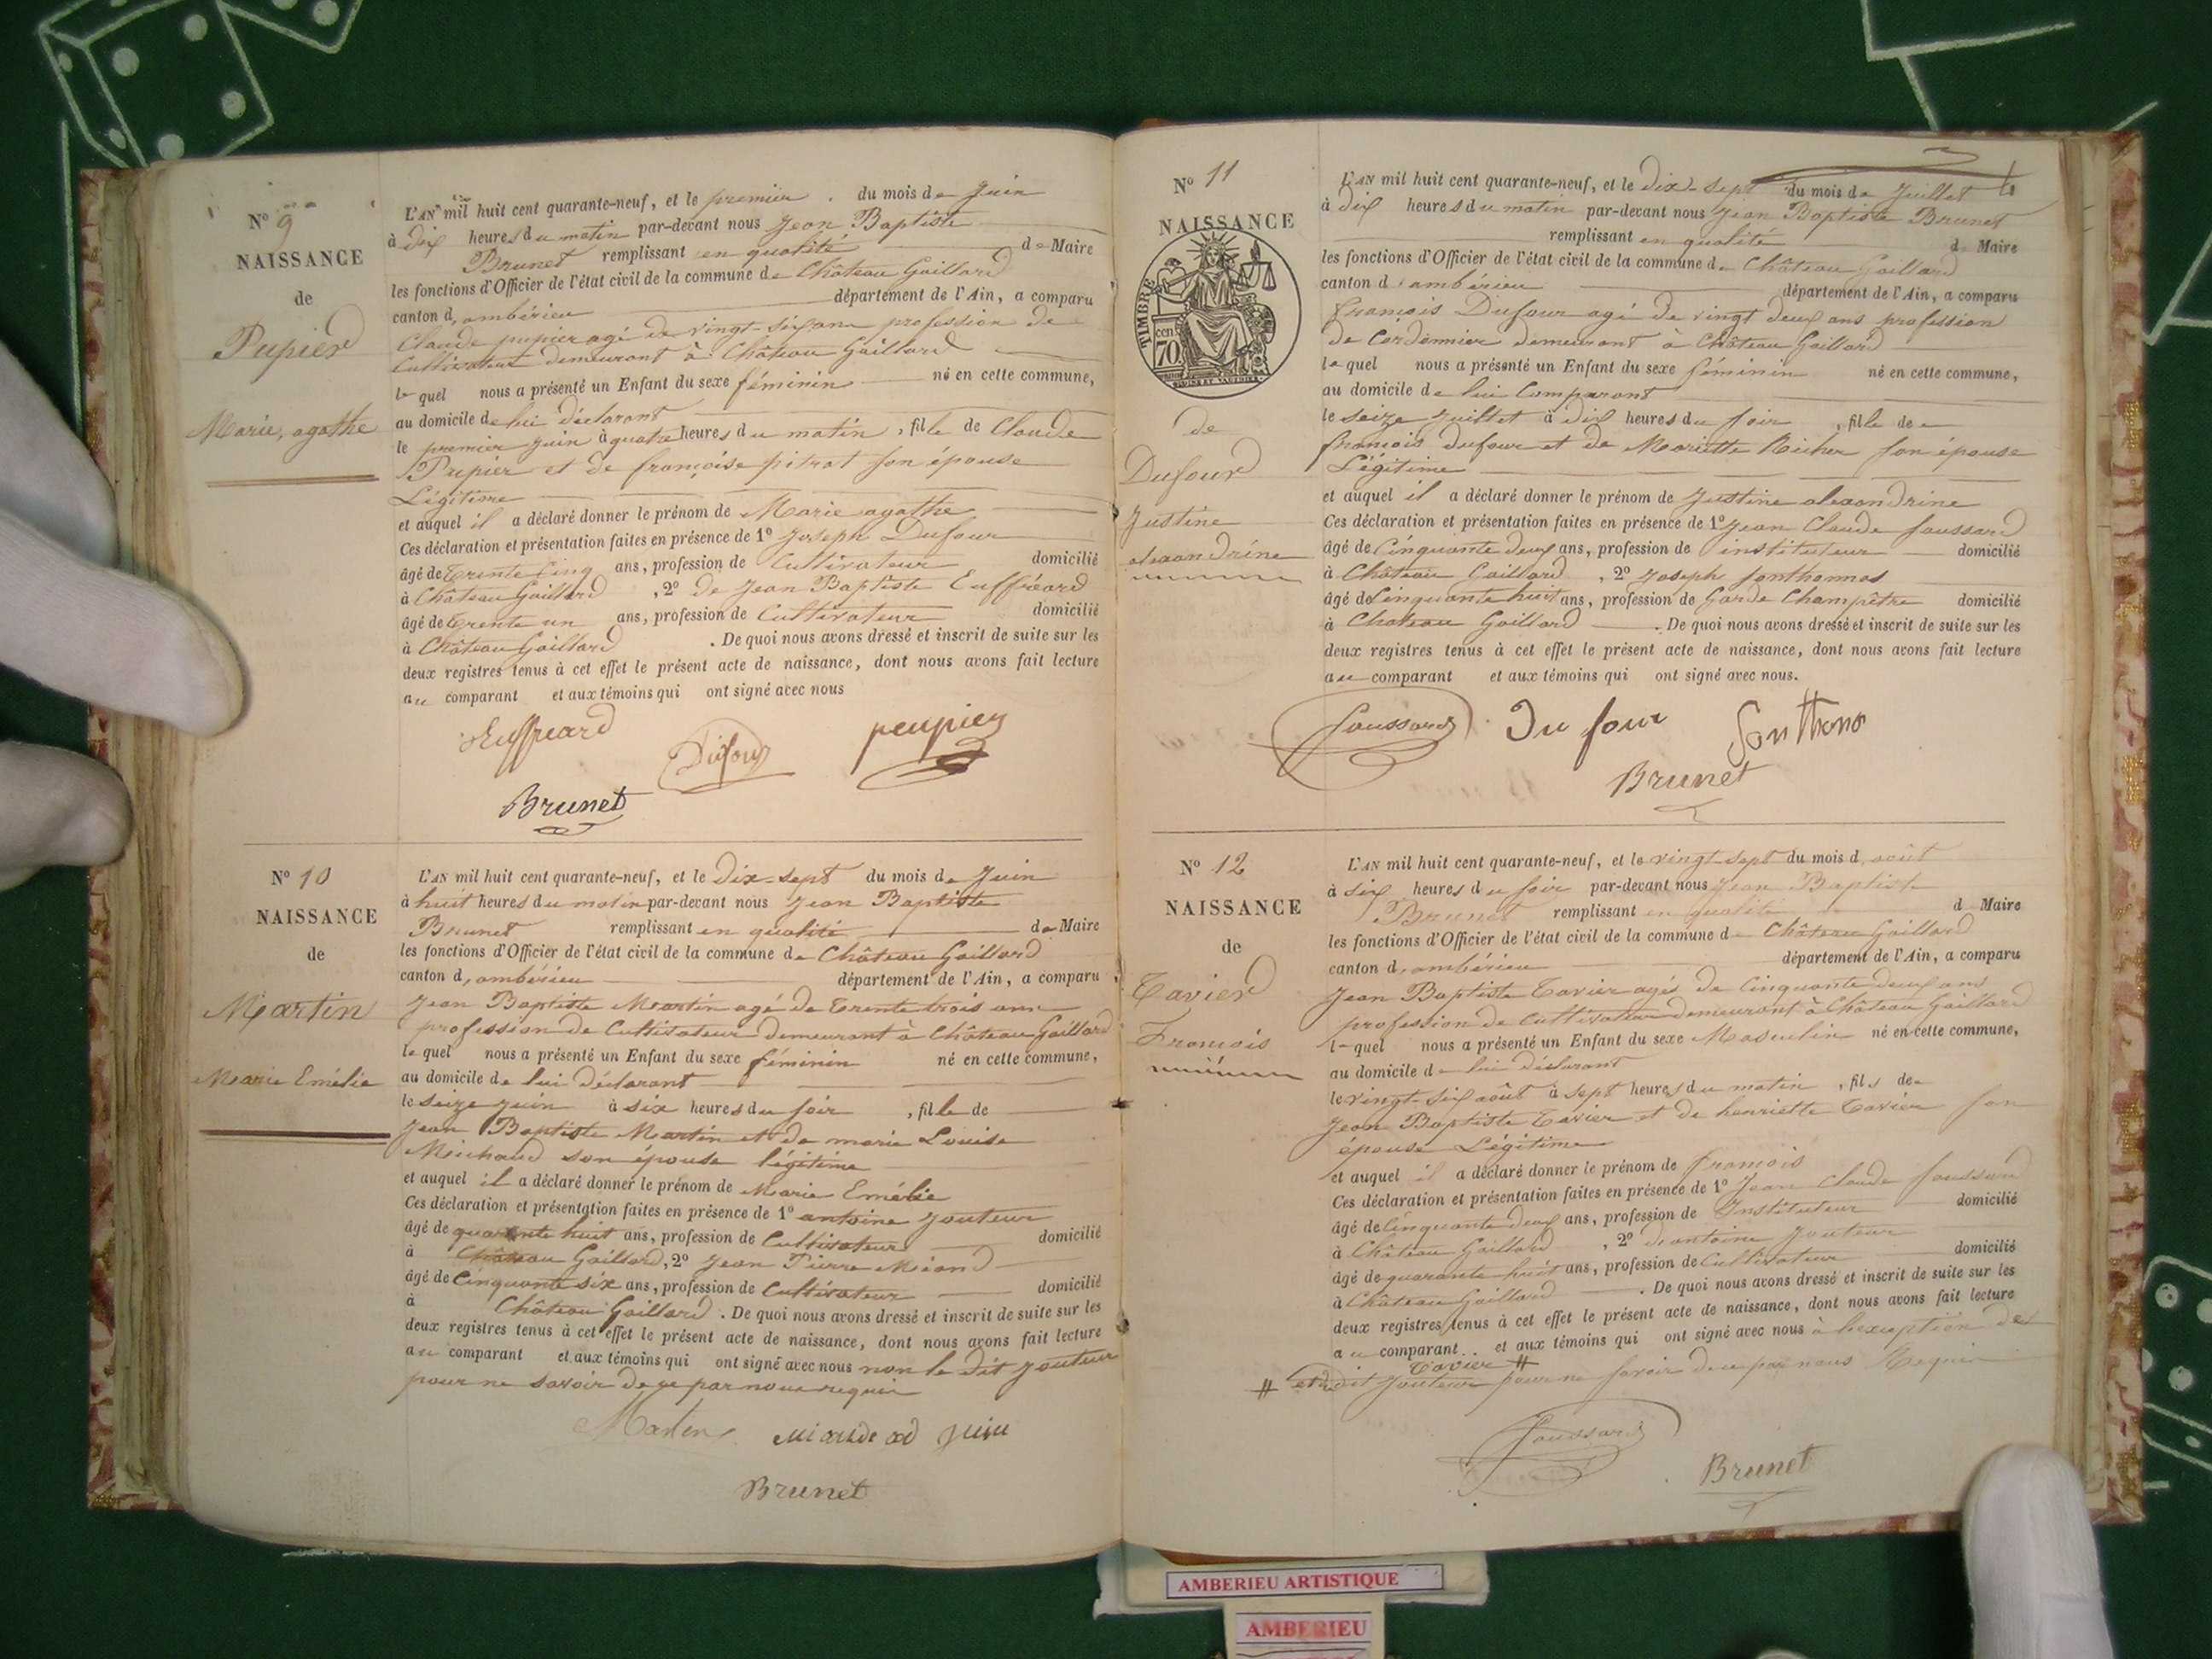 N° 9
NAISSANCE
de
Pupier
Marie, agathe
L'AN mil huit cent quarante-neuf, et le premier du mois de Juin
à dix heures du matin par-devant nous Jean Baptiste
Brunet remplissant en qualité de Maire
les fonctions d'Officier de l'état civil de la commune de Château Gaillard
canton d, ambérieu département de l'Ain, a comparu
Claude pupier agé de vingt-six ans profession de
Cultivateur demeurant à Château Gaillard
le quel nous a présenté un Enfant du sexe féminin né en cette commune,
au domicile de lui déclarant
le premier Juin à quatre heures du matin, fille de Claude
Pupier et de françoise pitrat son épouse
Légitime
et auquel il a déclaré donner le prénom de Marie agathe
Ces déclaration et présentation faites en présence de 1° Joseph Dufour
âgé de Trente Cinq ans, profession de Cultivateur domicilié
à Château Gaillard, 2° de Jean Baptiste Euffréard
âgé de Trente un ans, profession de Cultivateur domicilié
à Château Gaillard. De quoi nous avons dressé et inscrit de suite sur les
deux registres tenus à cet effet le présent acte de naissance, dont nous avons fait lecture
au comparant et aux témoins qui ont signé avec nous
Euffreard Dufour peupier
Brunet
N° 10
NAISSANCE
de
Martin
Marie Emélie
L'AN mil huit cent quarante-neuf, et le Dix-sept du mois de Juin
à huit heures du matin par-devant nous Jean Baptiste
Brunet remplissant en qualité de Maire
les fonctions d'Officier de l'état civil de la commune de Château Gaillard
canton d, ambérieu département de l'Ain, a comparu
Jean Baptiste Martin agé de Trente trois ans
profession de Cultivateur demeurant à Château Gaillard
le quel nous a présenté un Enfant du sexe féminin né en cette commune,
au domicile de lui déclarant
le seize Juin à six heures du soir, fille de
Jean Baptiste Martin et de marie Louise
Michaud son épouse légitime
et auquel il a déclaré donner le prénom de Marie Emélie
Ces déclaration et présentation faites en présence de 1° antoine Jouteur
âgé de quarante huit ans, profession de Cultivateur domicilié
à Château Gaillard, 2° Jean Pierre Miand
âgé de Cinquante six ans, profession de Cultivateur domicilié
à Château Gaillard. De quoi nous avons dressé et inscrit de suite sur les
deux registres tenus à cet effet le présent acte de naissance, dont nous avons fait lecture
au comparant et aux témoins qui ont signé avec nous non le dit Jouteur
pour ne savoir de ce par nous requis
Marten
Brunet
N° 11
NAISSANCE
TIMBRE
cen
70.
de
Dufour
Justine
alexandrine
L'AN mil huit cent quarante-neuf, et le Dix-sept du mois de Juillet
à dix heures du matin par-devant nous Jean Baptiste Brunet
remplissant en qualité de Maire
les fonctions d'Officier de l'état civil de la commune de Château Gaillard
canton d'ambérieu département de l'Ain, a comparu
françois Dufour agé de vingt deux ans profession
de Cordonnier demeurant à Château Gaillard
le quel nous a présenté un Enfant du sexe féminin né en cette commune,
au domicile de lui Comparant
le seize Juillet à dix heures du soir, fille de
françois Dufour et de Mariette Richer son épouse
Légitime
et auquel il a déclaré donner le prénom de Justine alexandrine
Ces déclaration et présentation faites en présence de 1° Jean Claude foussard
âgé de Cinquante deux ans, profession de instituteur domicilié
à Château Gaillard, 2° Joseph fonthonnas
âgé de Cinquante huit ans, profession de Garde Champêtre domicilié
à Chateau Gaillard. De quoi nous avons dressé et inscrit de suite sur les
deux registres tenus à cet effet le présent acte de naissance, dont nous avons fait lecture
au comparant et aux témoins qui ont signé avec nous.
foussard Du four
Brunet
N° 12
NAISSANCE
de
Tavier
François
L'AN mil huit cent quarante-neuf, et le vingt-sept du mois d, août
à six heures du soir par-devant nous Jean Baptiste
Brunet remplissant en qualité d Maire
les fonctions d'Officier de l'état civil de la commune d Château Gaillard
canton d, ambérieu département de l'Ain, a comparu
Jean Baptiste Tavier agés de Cinquante deux ans
profession de Cultivateur demeurant à Château Gaillard
le quel nous a présenté un Enfant du sexe Masculin né en cette commune,
au domicile de lui déclarant
le vingt-six août à sept heures du matin, fils de
Jean Baptiste Tavier et de henriette Tavier son
épouse Légitime
et auquel il a déclaré donner le prénom de françois
Ces déclaration et présentation faites en présence de 1° Jean Claude foussard
âgé de Cinquante deux ans, profession de Instituteur domicilié
à Château Gaillard, 2° d'antoine Jouteur
âgé de quarante huit ans, profession de Cultivateur domicilié
à Château Gaillard. De quoi nous avons dressé et inscrit de suite sur les
deux registres tenus à cet effet le présent acte de naissance, dont nous avons fait lecture
au comparant et aux témoins qui ont signé avec nous à l'exception de
Tavier #
# et du dit Jouteur pour ne savoir de ce par nous Requis
foussard
Brunet
AMBERIEU ARTISTIQUE
AMBERIEU